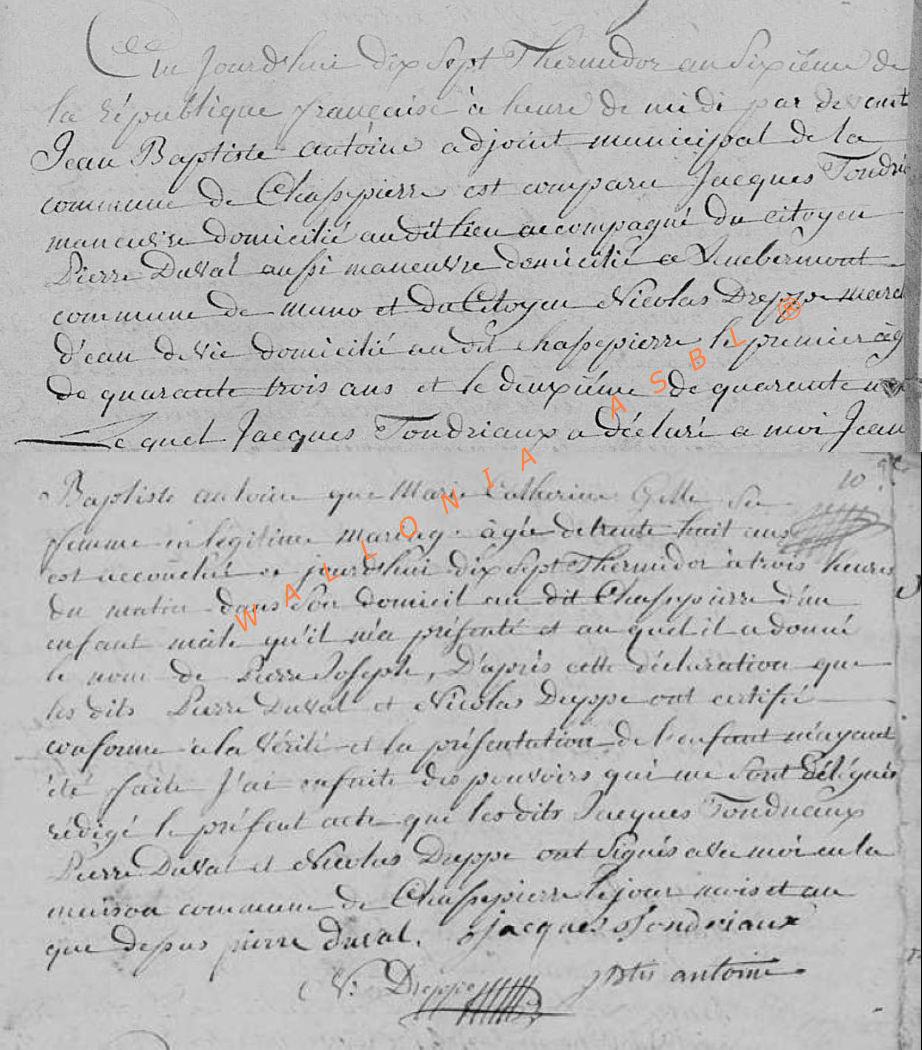 Cejourd'huie dix Sept Thermidor an Sixième de
la république française à heure de midi par devant
Jean Baptiste antoine adjoint municipal de la
commune de Chassepierre est comparu Jacques Tondri
maneuvre domicilié audit lieu accompagné du citoyen
Pierre Duval aussi maneuvre domicilié a
commune de muno et du Citoyen Nicolas Dreppe marc
d'eau de vie domicilié audit chassepierre le premier ag
de quarante trois ans et le deuxième de quarente
Lequel Jacques Tondriaux a déclaré a moi Jean
Baptiste antoine que Marie Catherine Sa
femme en légitime mariage agée de trente huit ans
est accouchée ce jourd'hui dix Sept Thermidor à trois heures
du matin dans Son domicil au dit Chassepierre d'un
enfant mâle qu'il m'a présenté et auquel il a donné
le nom de Pierre Joseph, D'après cette déclaration que
les dits Pierre Duval et Nicolas Dreppe ont certifié
conforme à la vérité et la présentation de l'enfant m'ayant
été faite J'ai ensuite des pouvoirs qui me Sont délégués
rédigé le présent acte que les dits Jacques Tondriaux
Pierre Duval et Nicolas Dreppe ont Signés avec moi en la
maison commune de Chassepierre le jour mois et an
que dessus pierre duval. Jacques Tondriaux
N: Dreppe jbtis antoine
10
WALLONIA ASBL ®